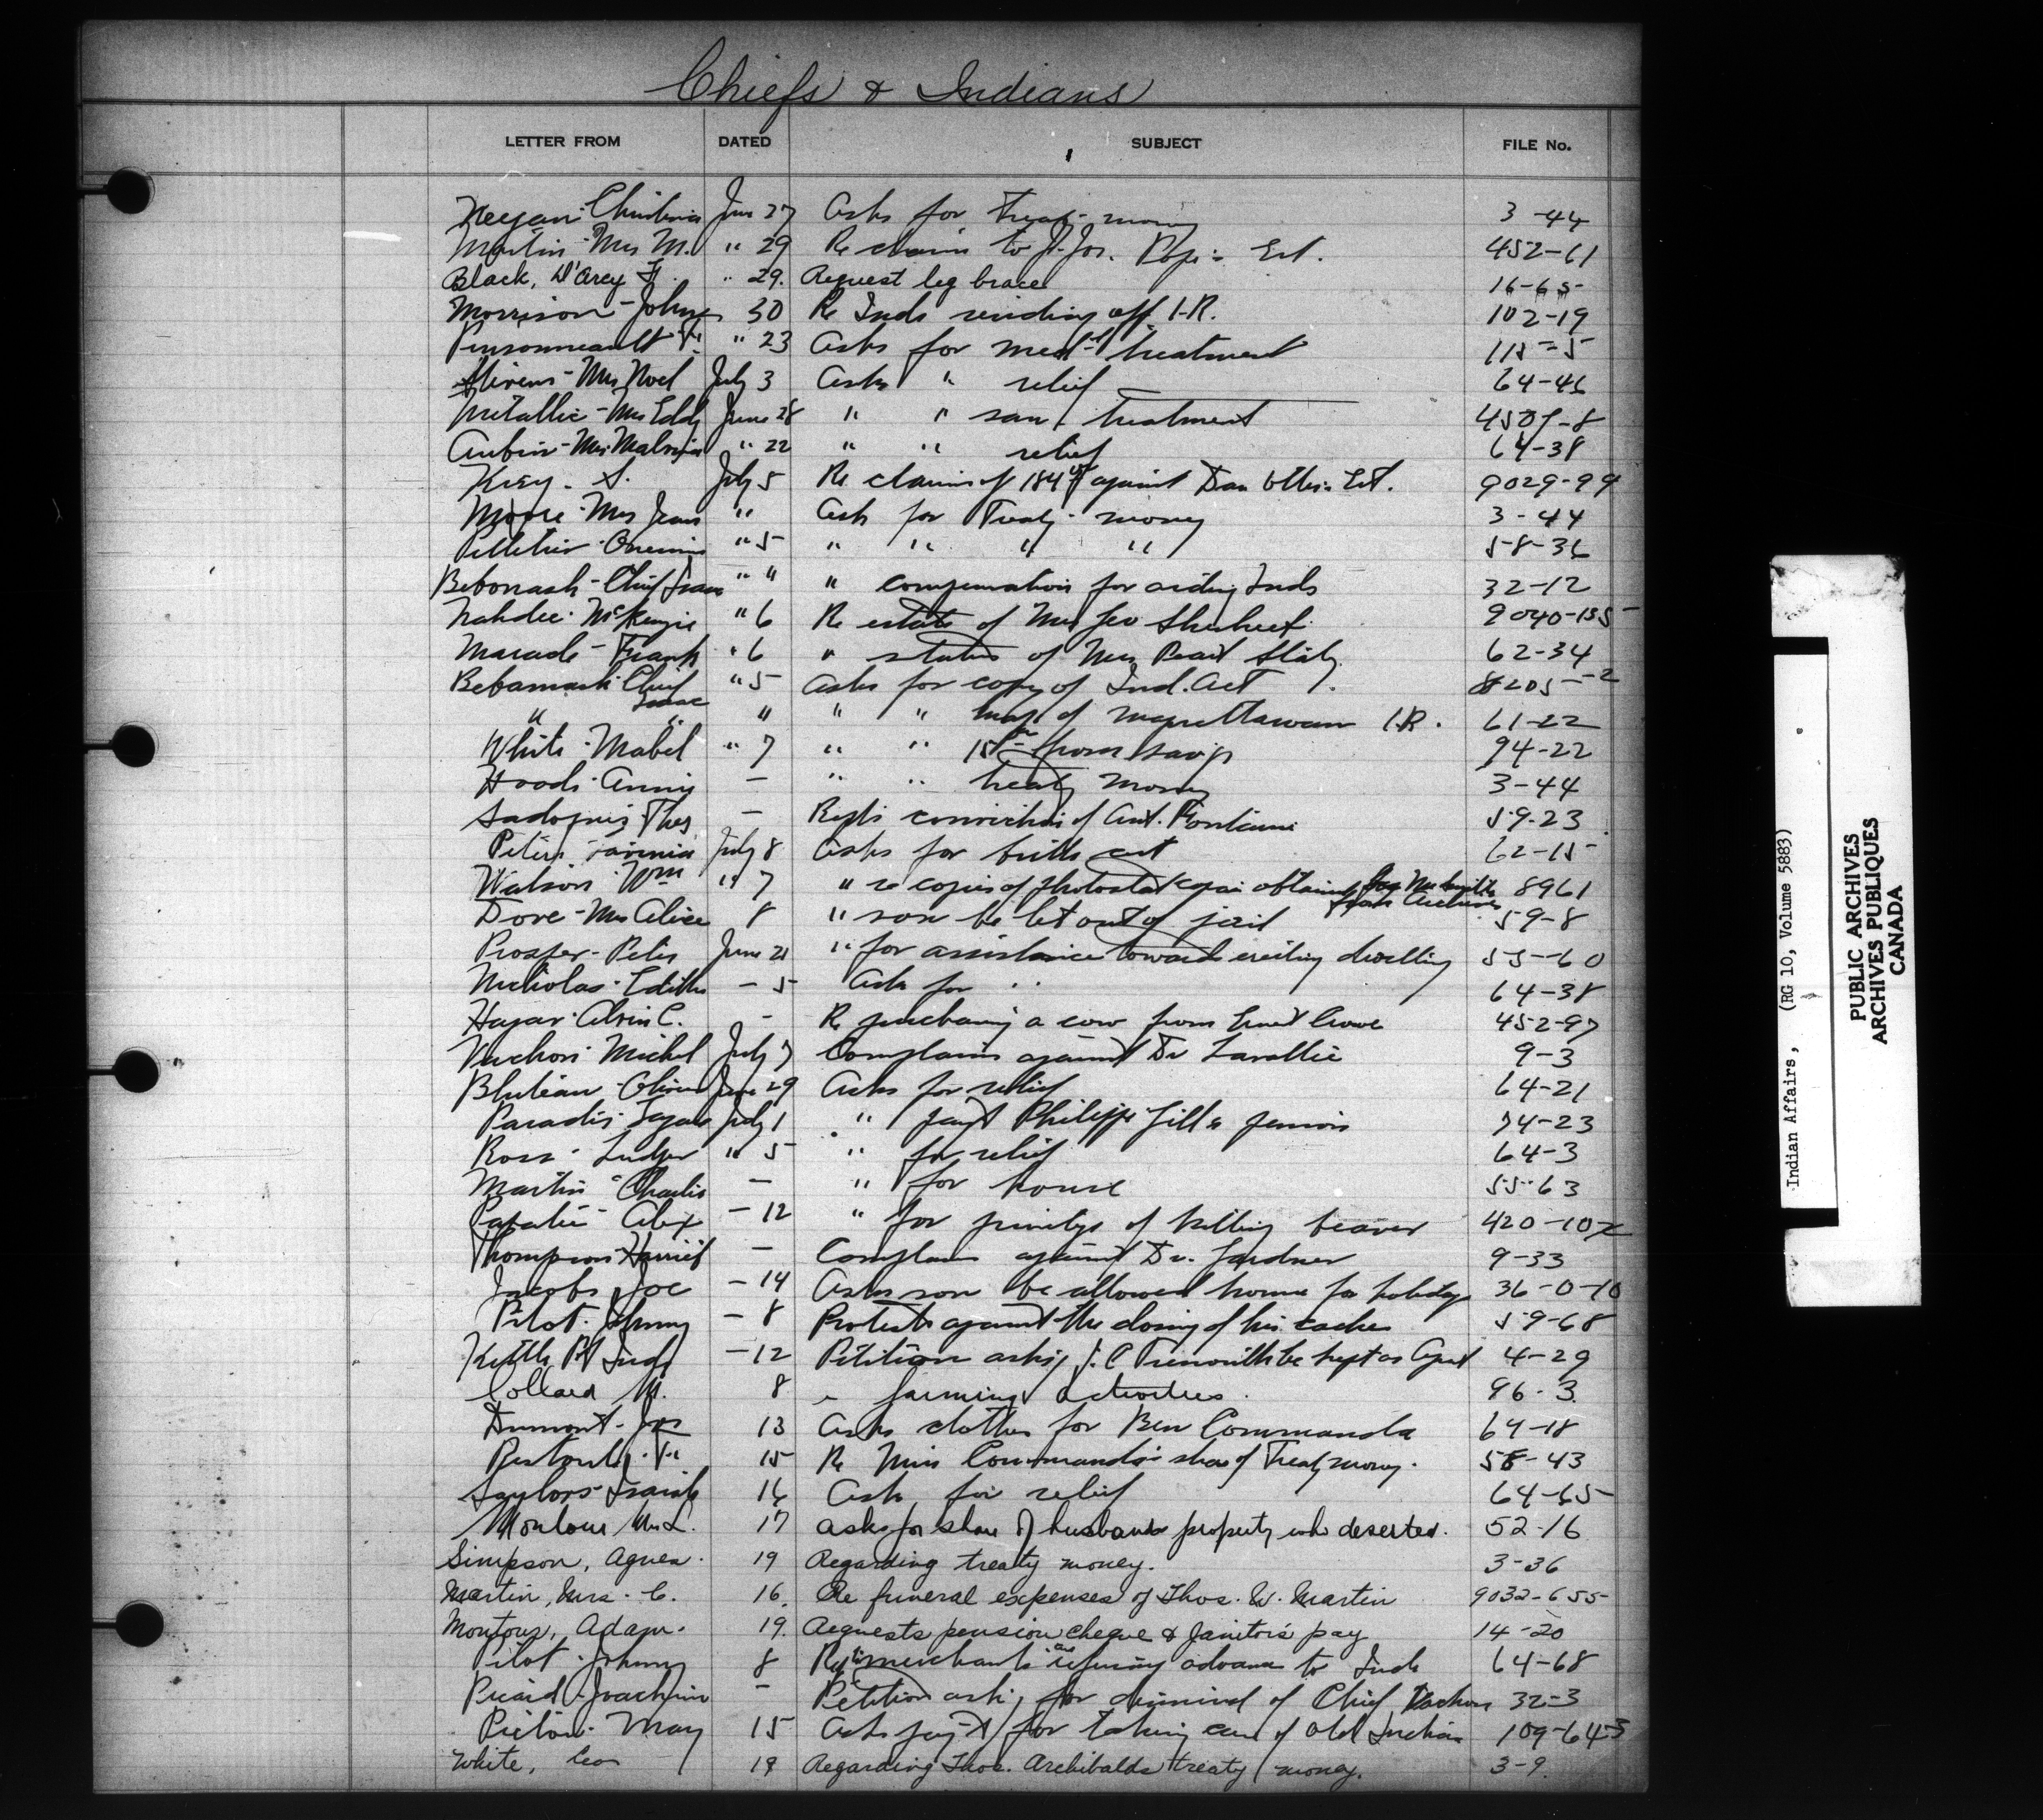 Chiefs & Indians
LETTER FROM DATED SUBJECT FILE No.
Keejan Christina Jun 27 Asks for Treaty money 3-44
Martin - Mrs M. " 29 Re claim to Jos. Est. 452-61
Black, D'Arcy " 29. Request leg brace 16-65
Morrison - John 30 Re Inds residing off I.R. 102-19
Pinsonneault " 23 Asks for med'l treatment 115-5
Mrs Noel July 3 Asks " relief 64-46
Metallic - Mrs Eddy June 28 " " san treatment 4507-8
Aubin - Mrs Malvina " 22 " " relief 64-38
Kiey - S. July 5 Re claim of against Dan Est. 9029-99
Moore - Mrs Jean " Ask for Treaty money 3-44
Pelletier - " 5 " " " " 58-36
Bebonash - Chief Isaac " " " compensation for aiding Inds 32-12
Nahdee - McKenzie " 6 Re estate of Mrs Geo 9040-155
Maracle - Frank " 6 " status of Mrs Pearl 62-34
Bebamash Chief Isaac " 5 Asks for copy of Ind. Act 8205-2
" " " " " map of Magnettawan I.R. 61-22
White - Mabel " 7 " " from savings 94-22
Hoods - Annie — " " treaty money 3-44
Thos — conviction of Ant. Fontaine 59-23
Peters Lavinia July 8 Asks for birth cert 62-15
Watson - Wm " 7 " re copies of photostat copies obtained from Archives 8961
Dove - Mrs Alice 8 " son be let out of jail 59-8
Prosper - Peter June 21 " for assistance towards erecting dwelling 55-60
Nicholas - Edith - 5 Ask for " 64-38
Hagar - Alvin C. - Re purchasing a cow from Crowe 452-97
Vachon - Michel July 7 Complains against Dr Lavallie 9-3
June 29 Asks for relief 64-21
Paradis July 1 " pay't Philippe Gill's pension 74-23
Ross - Ludger " 5 " for relief 64-3
Martin - Charlie — " for house 55-63
Papatie - Alex - 12 " for privilege of killing beaver 420-10
Thompson Harriet — Complains against Dr. Gardner 9-33
Jacobs Joe - 14 Asks son be allowed home for holidays 36-0-10
Pilot - Johnny - 8 Protests against the closing of his caches 59-68
Kettle Pt Inds - 12 Petition asking J.C Trenouth be kept as Agent 4-29
Collard M. 8 farming activities. 96-3
Dumont - Jos 13 Asks clothes for Ben Commanda 64-18
Restoule 15 Re Miss Commanda's share of Treaty money. 58-43
Saylors - Isaiah 16 Ask for relief 64-65
Montour Mrs L. 17 asks for share of husbands property who deserted. 52-16
Simpson, Agnes. 19 Regarding treaty money. 3-36
Martin, Mrs. C. 16. Re funeral expenses of Thos. W. Martin 9032-655
Montour, Adam. 19. Requests pension cheque & Janitor's pay 14-20
Pilot - Johnny 8 merchants refusing advances to Inds 64-68
Picard - Joachim - Petition asking for dismissal of Chief Vachon 32-3
Picton - May 15 Ask pay't for taking care of Old Indian 109-64-3
White, Geo 19 Regarding Thos. Archibalds treaty money. 3-9.
Indian Affairs, (RG 10, Volume 5883)
PUBLIC ARCHIVES
ARCHIVES PUBLIQUES
CANADA